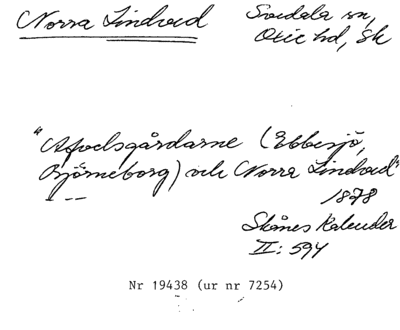 Norra Lindved Svedala sn,
Oxie hd, Sk
"Afvelsgårdarne (Ebbesjö,
Björneborg) och Norra Lindved"
1878
Skånes Kalender
II: 594
Nr 19438 (ur nr 7254)